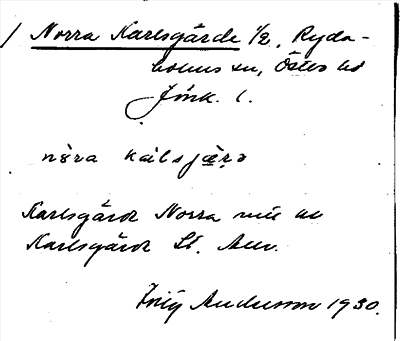 Norra Karlsgårde 1/2, Ryda-
holms sn, Östbo hd
Jönk. l.
nöra kalsjærə
Karlsgårde Norra
Karlsgårde
Andersson 1930.